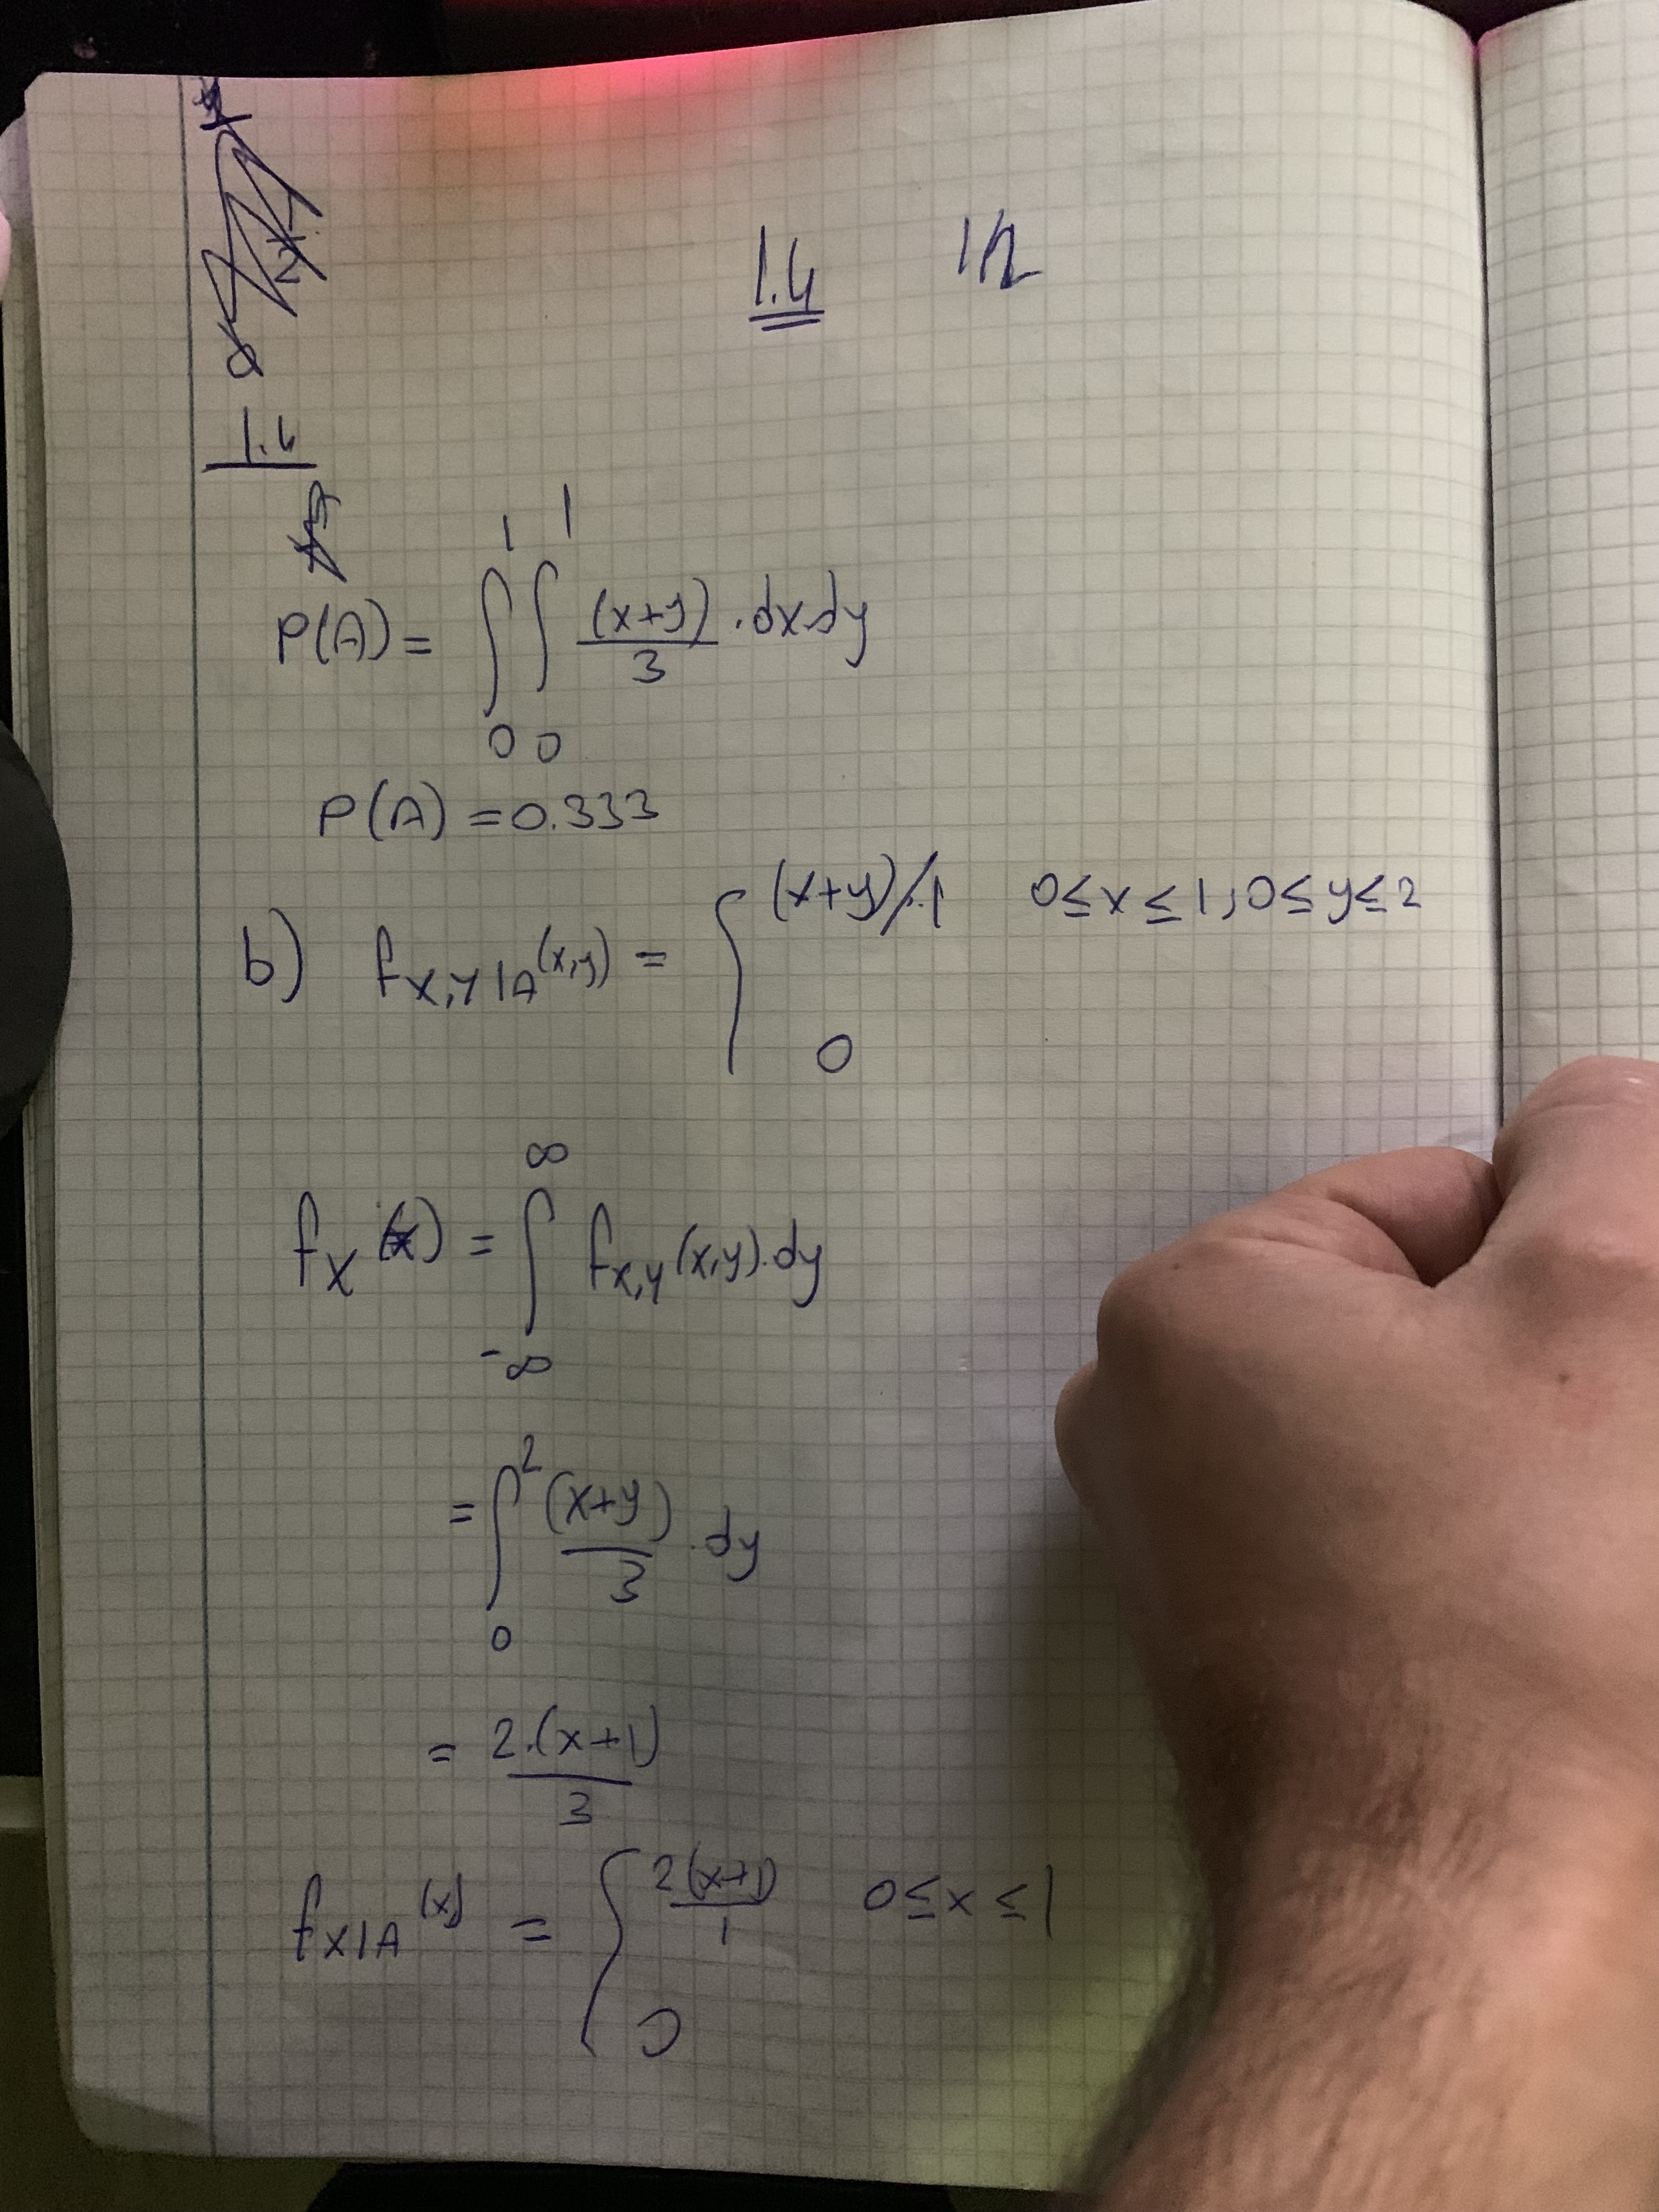 1.4 1/2
1.4
P(A) = ∫₀¹ ∫₀¹ (x+y)/3 . dx.dy
P(A) = 0.333
b) f_{X,Y|A}(x,y) = { (x+y)/1 0≤x≤1, 0≤y≤2
0
f_X(x) = ∫_{-∞}^{∞} f_{x,y}(x,y).dy
= ∫₀² (x+y)/3 . dy
= 2.(x+1)/3
f_{X|A}(x) = { 2(x+1)/1 0≤x≤1
0